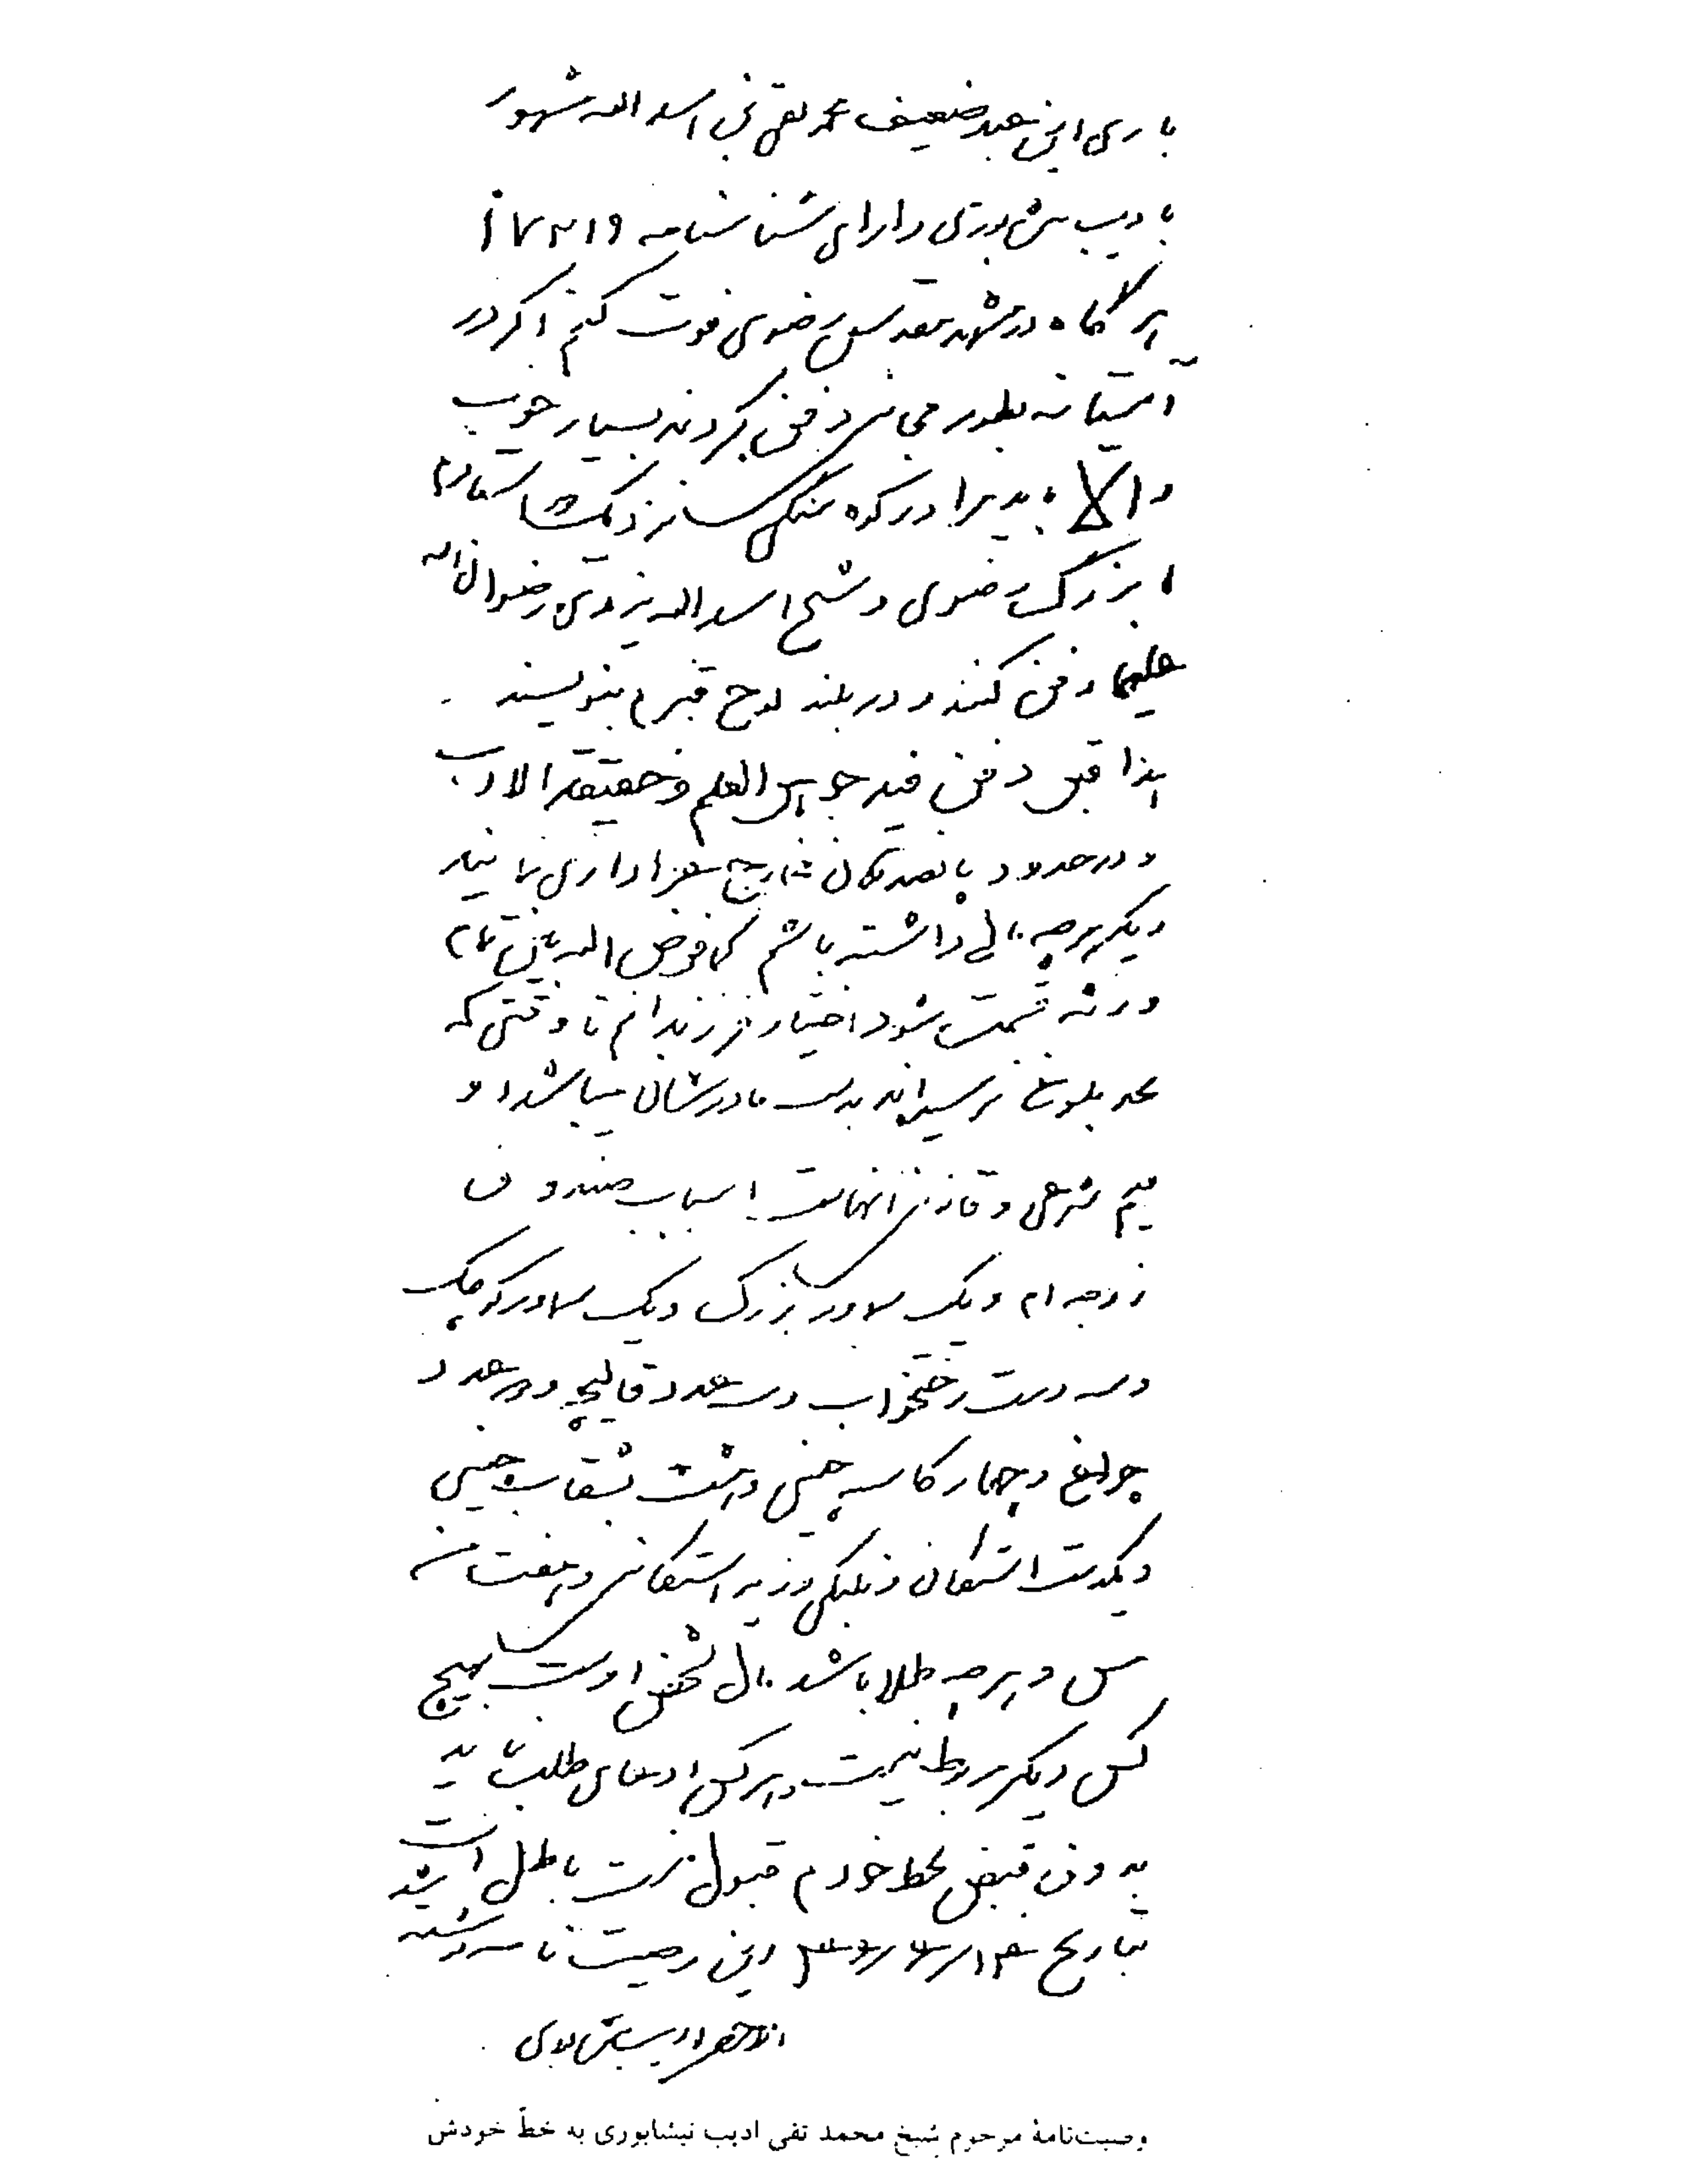 باری این عبد ضعیف محمد تقی بن اسد الله مشهور
بادیب نیشابوری دارای شناسنامه ۱۷۳۱۹
هرگاه در مشهد مقدس رضوی فوت کنم اگر در
آستانه بطور مجانی دفن کردند بسیار خوب
والا باید مرا در کوه سنگی نزدیک
بزرگ رضوی و شیخ اسد الله یزدی رضوان الله
علیهما دفن کنند و در بلند لوح قبرم بنویسند
هذا قبر دفن فیه جواهر العلم و حقیقة الادب
و در حدود پانصد تومان خارج عزاداری نمایند
دیگر هرچه مالی داشته باشم کما فرض الله بین تمام
ورثه قسمت شود اختیار فرزندانم تا وقتی که
بحد بلوغ نرسیده‌اند بدست مادرشان میباشد او
قیم شرعی و قانونی آنهاست اسباب صندوق
زوجه ام و یک سماور بزرگ و یک سماور کوچک
و سه دست رختخواب و سه عدد قالیچه و دو عدد
چراغ و چهار کاسه چینی و هشت بشقاب چینی
و یکدست استکان و نلبکی و زیر استکانی و هفت
مس و هرچه طلا باشد مال شخص اوست بهیچ
کس دیگر مربوط نیست و هر کس ادعای طلب نماید
بدون قبض بخط خودم قبول نیست باطل است
بتاریخ این وصیت نامه نوشته شد
الاحقر ادیب نیشابوری
وصیت‌نامهٔ مرحوم شیخ محمد تقی ادیب نیشابوری به خطّ خودش